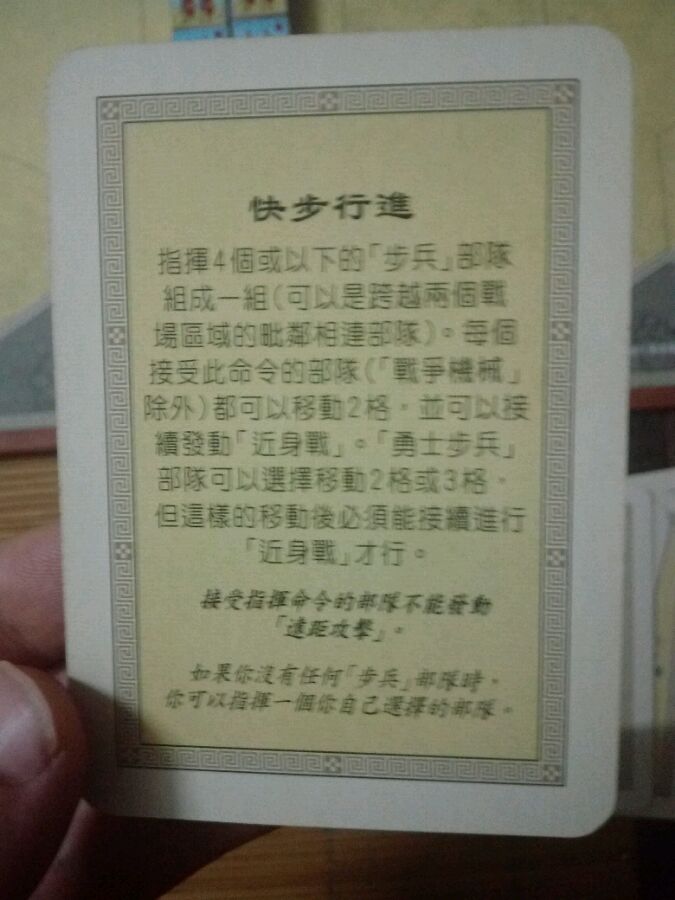 快步行進
指揮4個或以下的「步兵」部隊
組成一組(可以是跨越兩個戰
場區域的毗鄰相連部隊)。每個
接受此命令的部隊(「戰爭機械」
除外)都可以移動2格，並可以接
續發動「近身戰」。「勇士步兵」
部隊可以選擇移動2格或3格，
但這樣的移動後必須能接續進行
「近身戰」才行。
接受指揮命令的部隊不能發動
「遠距攻擊」。
如果你沒有任何「步兵」部隊時，
你可以指揮一個你自己選擇的部隊。